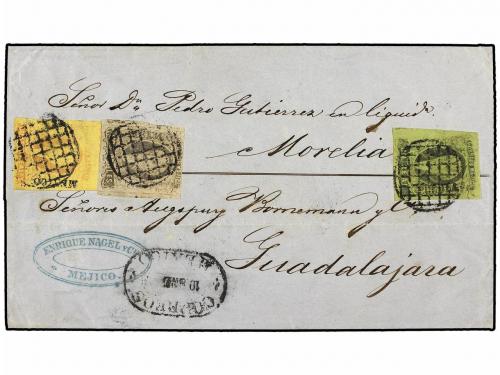 Señor Dn Pedro Gutierrez en liquidn
Morelia
Señores Augspurg Bornemann y Ca
Guadalajara
MEXICO
ENRIQUE NAGEL Y Ca
MEJICO
CORREOS
10